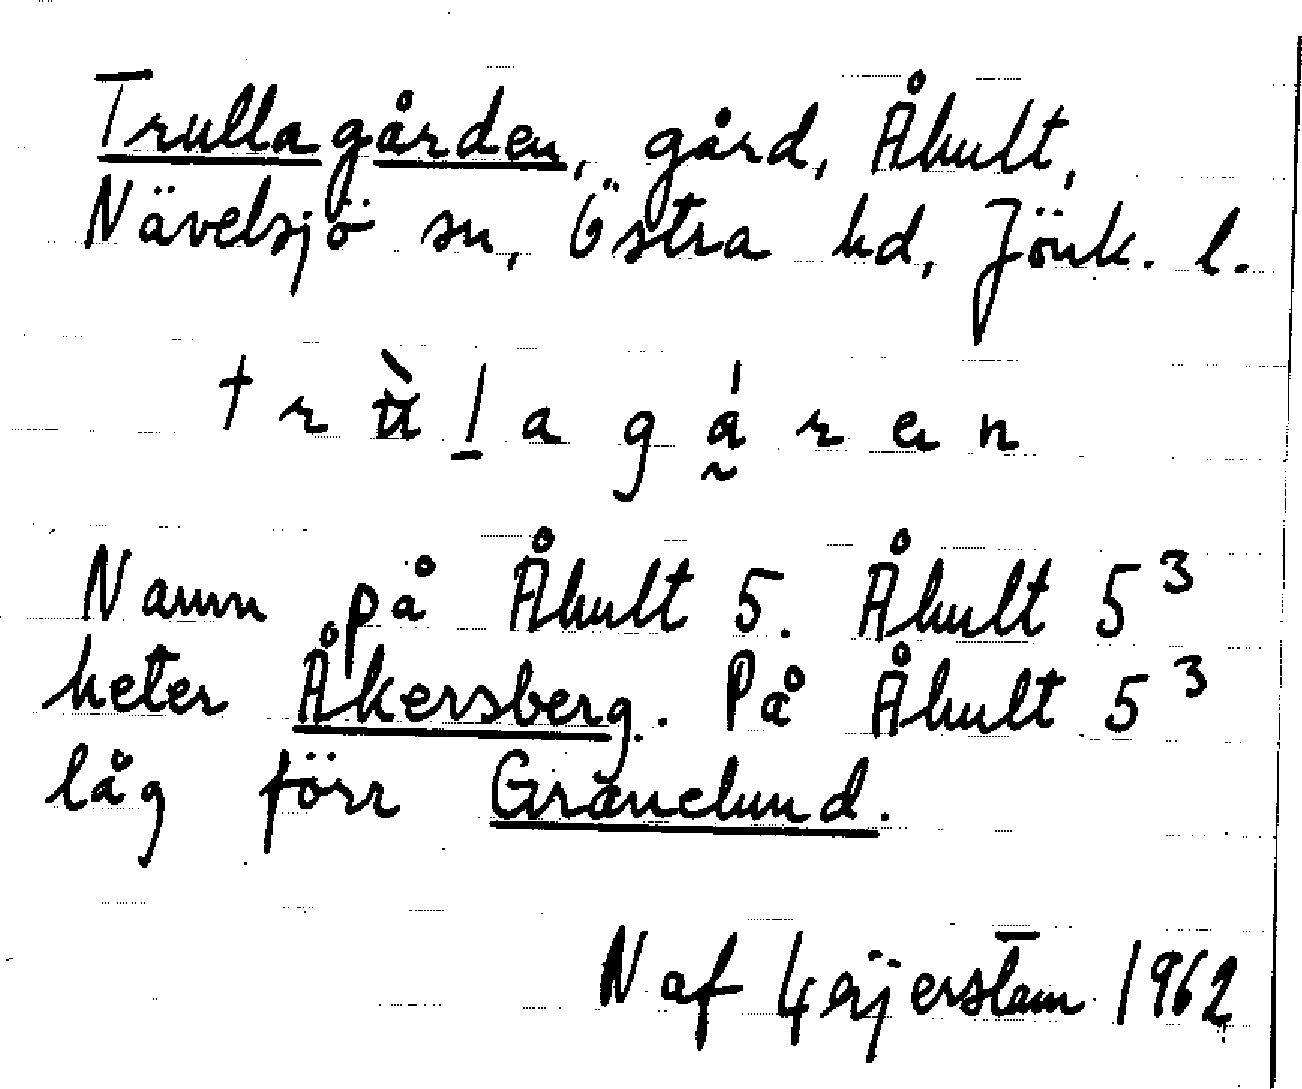 Trullagården, gård, Åhult,
Nävelsjö sn, Östra hd, Jönk. l.
Namn på Åhult 5. Åhult 5³
heter Åkersberg. På Åhult 5³
låg förr Granelund.
N af Geijerstam 1962